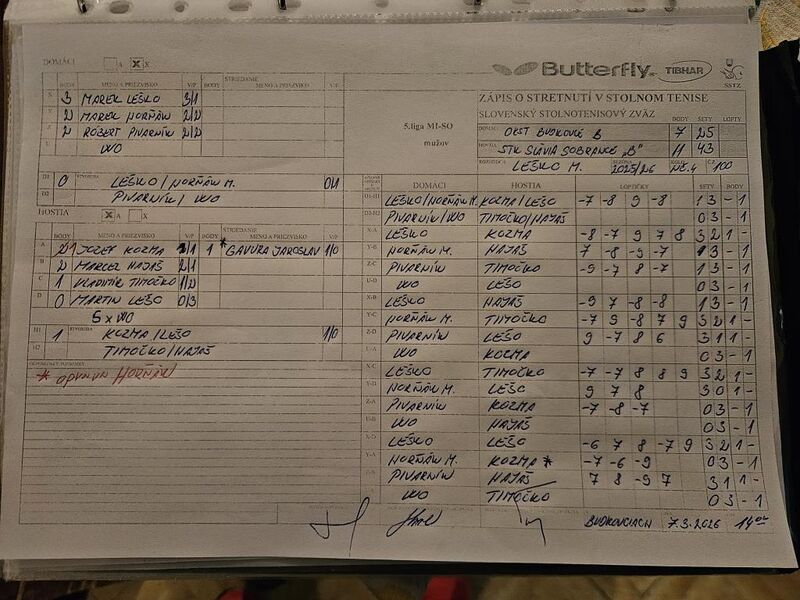 DOMÁCI A X X
Butterfly TIBHAR SSTZ
BODY MENO A PRIEZVISKO V/P BODY STRIEDANIE MENO A PRIEZVISKO V/P
3 MAREK LEŠKO 3/1
2 MAREK NORŇÁK 2/2
2 RÓBERT PIVARNÍK 2/2
WO
5.liga MI-SO
mužov
ZÁPIS O STRETNUTÍ V STOLNOM TENISE
SLOVENSKÝ STOLNOTENISOVÝ ZVÄZ
BODY SETY LOPTY
DOMÁCI OKST BUDKOVCE B 7 25
HOSTIA STK SLÁVIA SOBRANCE „B" 11 43
LEŠKO M. SEZÓNA 2025/26 KOLO NE.4 Č.Z. 100
D1 0 ŠTVORHRA LEŠKO/NORŇÁK M. 0/1
D2 PIVARNÍK/WO
HOSTIA X A X
BODY MENO A PRIEZVISKO V/P BODY STRIEDANIE MENO A PRIEZVISKO V/P
A 1 JOZEF KOZMA 1/1 1 * GAVURA JAROSLAV 1/0
B 2 MARCEL HAJAŠ 2/1
C 1 VLADIMÍR TIMOČKO 1/2
D 0 MARTIN LEŠO 0/3
5 x WO
H1 1 ŠTVORHRA KOZMA/LEŠO 1/0
H2 TIMOČKO/HAJAŠ
DOMÁCI HOSTIA LOPTIČKY SETY BODY
D1-H1 LEŠKO/NORŇÁK M. KOZMA/LEŠO -7 -8 9 -8 1 3 - 1
D2-H2 PIVARNÍK/WO TIMOČKO/HAJAŠ 0 3 - 1
X-A LEŠKO KOZMA -8 -7 9 7 8 3 2 1 -
Y-B NORŇÁK M. HAJAŠ 7 -8 -9 -7 1 3 - 1
Z-C PIVARNÍK TIMOČKO -9 -7 8 -7 1 3 - 1
U-D WO LEŠO 0 3 - 1
X-B LEŠKO HAJAŠ -9 7 -8 -8 1 3 - 1
Y-C NORŇÁK M. TIMOČKO -7 9 -8 7 9 3 2 1 -
Z-D PIVARNÍK LEŠO 9 -7 8 6 3 1 1 -
U-A WO KOZMA 0 3 - 1
X-C LEŠKO TIMOČKO -7 -7 8 8 9 3 2 1 -
Y-D NORŇÁK M. LEŠO 9 7 8 3 0 1 -
Z-A PIVARNÍK KOZMA -7 -8 -7 0 3 - 1
U-B WO HAJAŠ 0 3 - 1
X-D LEŠKO LEŠO -6 7 8 -7 9 3 2 1 -
Y-A NORŇÁK M. KOZMA * -7 -6 -9 0 3 - 1
Z-B PIVARNÍK HAJAŠ 7 8 -9 7 3 1 1 -
WO TIMOČKO 0 3 - 1
BUDKOVCIACH 7.3.2026 14 00